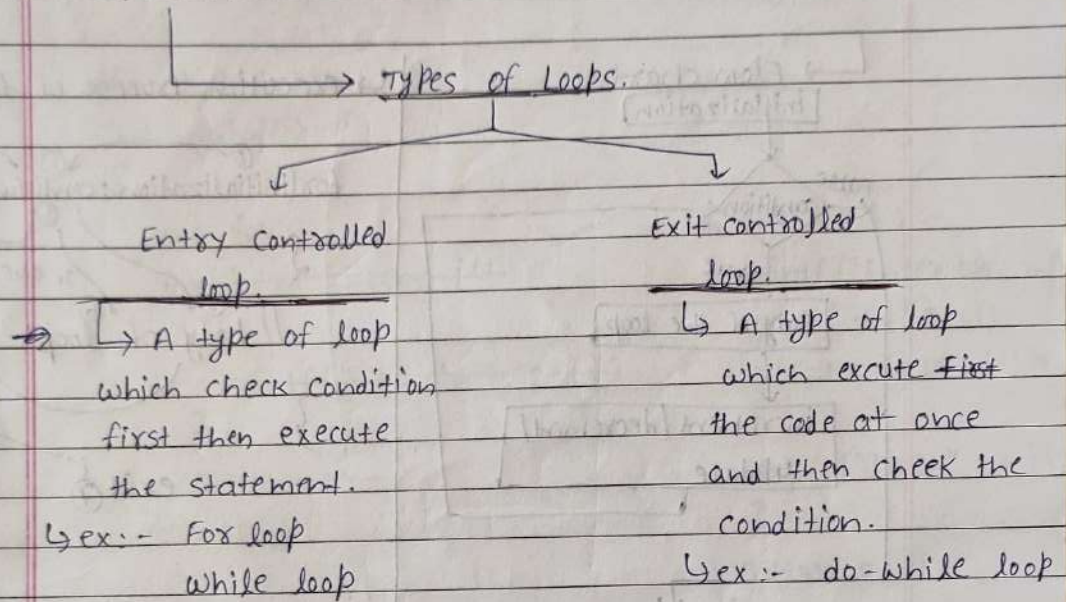 Types of Loops.
Entry controlled
loop.
A type of loop
which check condition
first then execute
the statement.
ex:- For loop
while loop
Exit controlled
loop.
A type of loop
which excute first
the code at once
and then cheek the
condition.
ex:- do-while loop